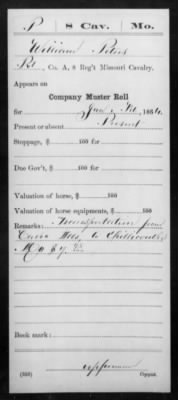 P | 8 Cav. | Mo.
William Peters
Pvt., Co. A, 8 Reg't Missouri Cavalry.
Appears on
Company Muster Roll
for Jan & Feb, 1864.
Present or absent Present
Stoppage, $ 100 for
Due Gov't, $ 100 for
Valuation of horse, $ 100
Valuation of horse equipments, $ 100
Remarks: Transportation from
to Chillicothe
Mo $7.
Book mark:
(358)
Copyist.